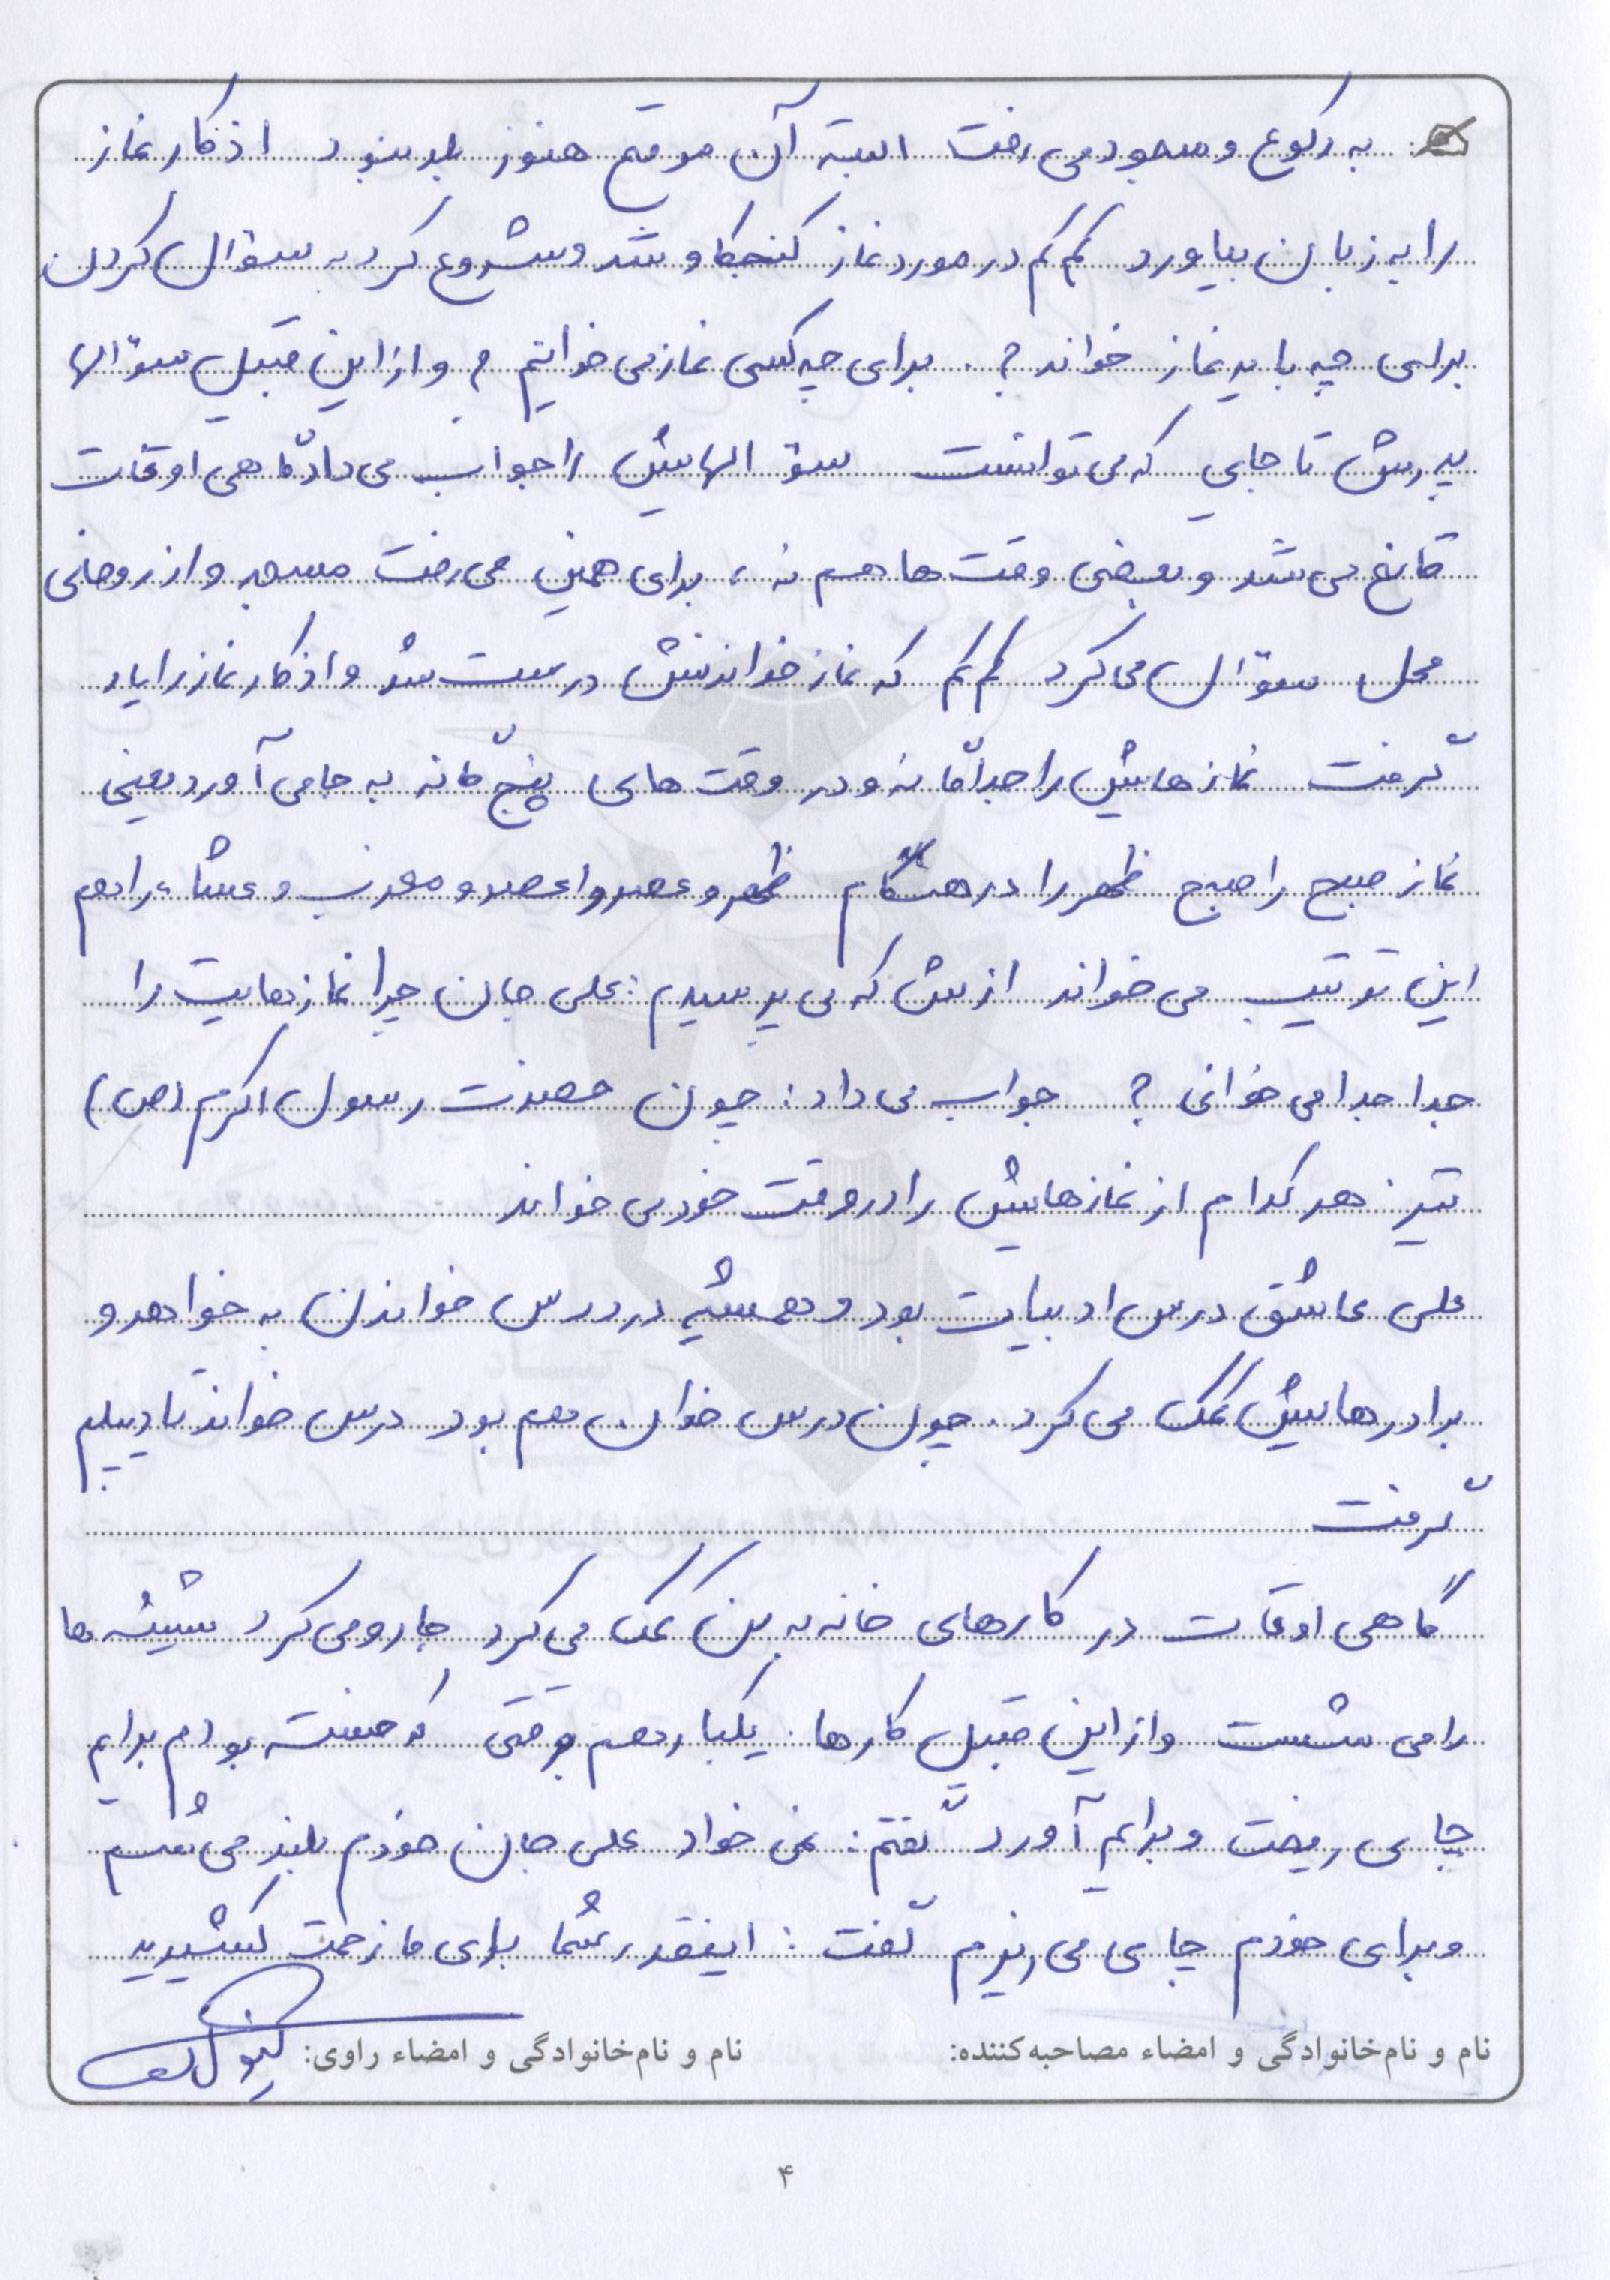 به رکوع و سجود می رفت البته آن موقع هنوز بلد نبود اذکار نماز
را به زبان بیاورد کم کم در مورد نماز کنجکاو شد و شروع کرد به سؤال کردن
برای چه باید نماز خواند؟ . برای چه کسی نماز می خوانیم ؟ و از این قبیل سؤالها
پدرش تا جایی که می توانست سؤالهایش را جواب می داد گاهی اوقات
قانع می شد و بعضی وقت ها هم نه ، برای همین می رفت مسجد و از روحانی
محل سؤال می کرد کم کم که نماز خواندنش درست شد و اذکار نماز را یاد
گرفت نمازهایش را جداگانه و در وقت های پنج گانه به جا می آورد یعنی
نماز صبح را صبح ظهر را در هنگام ظهر و عصر را عصر و مغرب و عشاء را هم
این ترتیب می خواند ازش که می پرسیدم : علی جان چرا نمازهایت را
جدا جدا می خوانی ؟ جواب می داد : چون حضرت رسول اکرم (ص)
نیز هر کدام از نمازهایش را در وقت خود می خواند
علی عاشق درس ادبیات بود و همیشه در درس خواندن به خواهر و
برادرهایش کمک می کرد . چون درس خوان هم بود درس خواند تا دیپلم
گرفت
گاهی اوقات در کارهای خانه به من کمک می کرد جارو می کرد شیشه ها
را می شست و از این قبیل کارها . یکبار هم وقتی که خسته بودم برایم
چای ریخت و برایم آورد گفتم : نمی خواد علی جان خودم بلند می شم
و برای خودم چای می ریزم گفت : اینقدر شما برای ما زحمت کشیدید
نام و نام‌خانوادگی و امضاء مصاحبه‌کننده: نام و نام‌خانوادگی و امضاء راوی:
۴